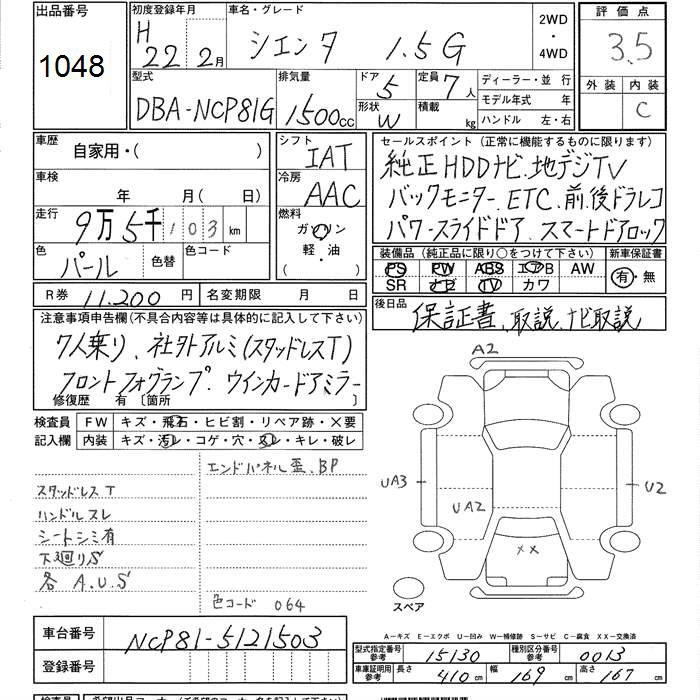 出品番号
1048
初度登録年月
H 22年 2月
車名・グレード
シエンタ 1.5G
2WD・4WD
評価点
3.5
外装 内装
C
型式
DBA-NCP81G
排気量
1500cc
ドア
5
形状
W
定員
7人
積載
kg
ディーラー・並行
モデル年式 年
ハンドル 左・右
車歴
自家用・( )
車検
年 月( 日)
走行
9万5千103km
色
パール
色替
色コード
シフト
IAT
冷房
AAC
燃料
ガソリン
軽・油
( )
セールスポイント(正常に機能するものに限ります)
純正HDDナビ、地デジTV
バックモニター、ETC、前、後ドラレコ
パワースライドドア、スマートドアロック
装備品(純正品に限り○をつけて下さい)
新車保証書
PS PW ABS エアB AW
SR ナビ TV カワ
有・無
R券 11,200円
名変期限 月 日
後日品
保証書、取説、ナビ取説
注意事項申告欄(不具合内容等は具体的に記入して下さい)
7人乗り、社外アルミ(スタッドレスT)
フロントフォグランプ、ウインカードアミラー
修復歴 有〔箇所 〕
検査員 FW キズ・飛石・ヒビ割・リペア跡・×要
記入欄 内装 キズ・汚レ・コゲ・穴・スレ・キレ・破レ
エンドパネル歪、BP
スタッドレスT
ハンドルスレ
シートシミ有
下廻りS
各A.U.S
色コード 064
A2
UA3
UA2
U2
××
スペア
A－キズ E－エクボ U－凹み W－補修跡 S－サビ C－腐食 XX－交換済
車台番号
NCP81-5121503
登録番号
型式指定番号 参考 15130
種別区分番号 参考 0013
車庫証明用 参考 長さ 410cm 幅 169cm 高さ 167cm